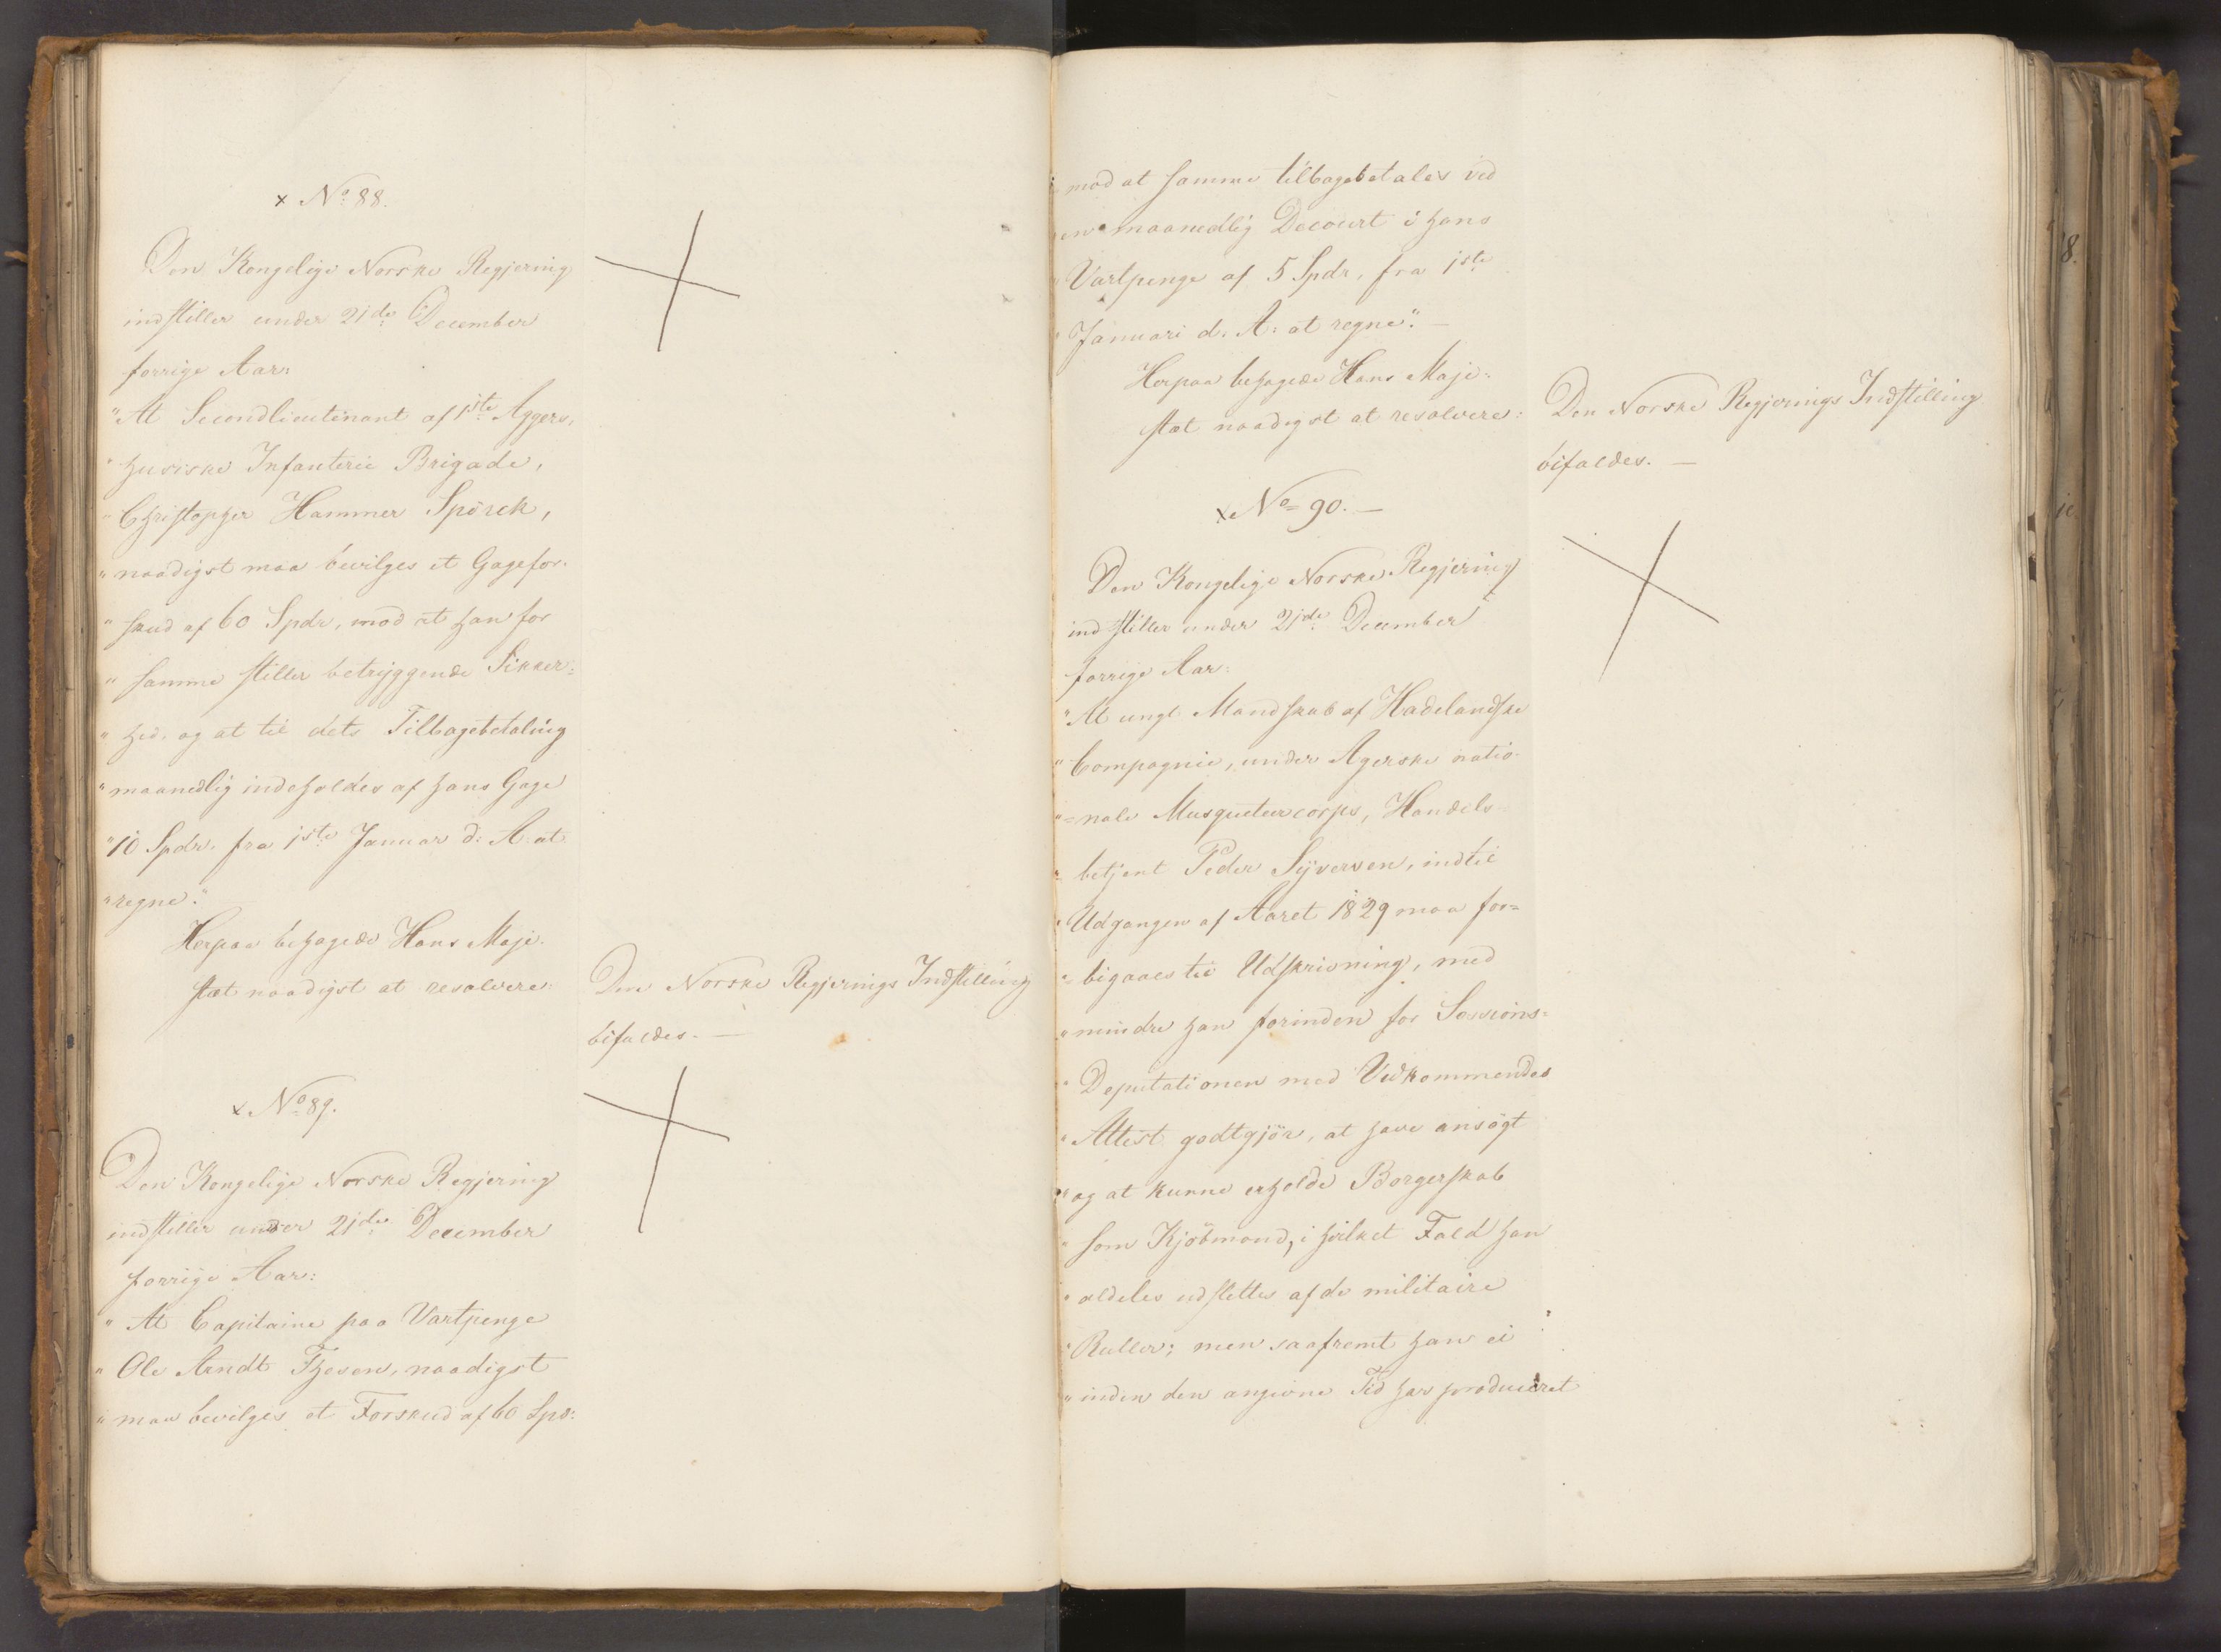 x No 88.
Den Kongelige Norske Regjering
indstiller under 21de December
forrige Aar:
"At Secondlieutenant af 1ste Aggers,
"husiske Infanterie Brigade,
"Christopher Hammer Spörck,
"naadigst maa bevilges et Gagefor-
"skud af 60 Spdr, mod at han for
"samme stiller betryggende Sikker=
"hed, og at til dets Tilbagebetaling
"maanedlig indeholdes af hans Gage
"10 Spdr. fra 1ste Januar d: A at
"regne."
Herpaa behagede Hans Maje-
stæt naadigst at resolvere:
Den Norske Regjerings Indstilling
bifaldes. —
x No 89.
Den Kongelige Norske Regjering
indstiller under 21de December
forrige Aar:
"At Capitaine paa Vartpenge
"Ole Arndt Thesen, naadigst
"maa bevilges et Forskud af 60 Spd:
"mod at samme tilbagebetales ved
"en maanedlig Decourt i hans
"Vartpenge af 5 Spdr, fra 1ste
"Januari d. A: at regne". —
Herpaa behagede Hans Maje=
stæt naadigst at resolvere:
Den Norske Regjerings Indstilling
bifaldes. —
x No 90. —
Den Kongelige Norske Regjering
indstiller under 21de December
forrige Aar:
"At ungt Mandskab af Hadelandske
"Compagnie, under Agerske natio-
"=nale Musqueteurcorps, Handels-
"betjent Peder Syversen, indtil
"Udgangen af Aaret 1829 maa for=
"bigaaes til Udskrivning, med
"mindre han forinden for Sessions=
"Deputationen med Vedkommendes
"Attest godtgjör, at have ansögt
"og at kunne erholde Borgerskab
"som Kjöbmand, i hvilket Fald han
"aldeles udslettes af de militaire
"Ruller; men saafremt han ei
"inden den angivne Tid har produceret